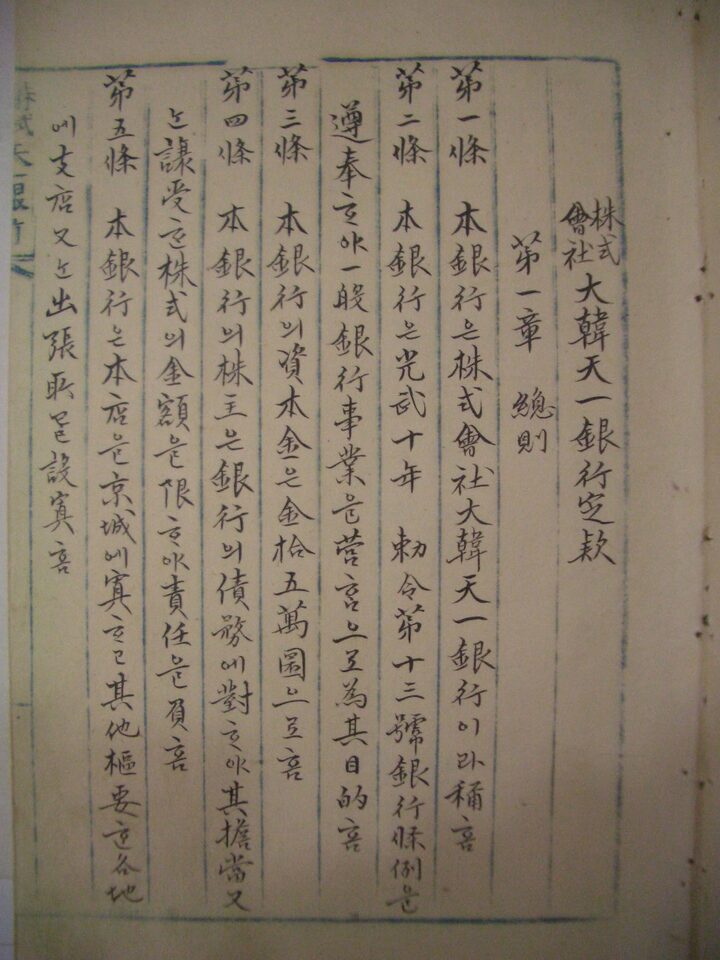 株式會社 大韓天一銀行定款
第一章 總則
第一條 本銀行은株式會社大韓天一銀行이라稱홈
第二條 本銀行은光武十年 勅令第十三號銀行條例을
遵奉ᄒᆞ야一般銀行事業을營홈으로為其目的홈
第三條 本銀行의資本金은金拾五萬圜으로홈
第四條 本銀行의株主은銀行의債務에對ᄒᆞ야其擔當又
ᄂᆞᆫ讓受ᄒᆞᆫ株式의金額을限ᄒᆞ야責任을負홈
第五條 本銀行은本店을京城에寘ᄒᆞ고其他樞要ᄒᆞᆫ各地
에支店又ᄂᆞᆫ出張所을設寘홈